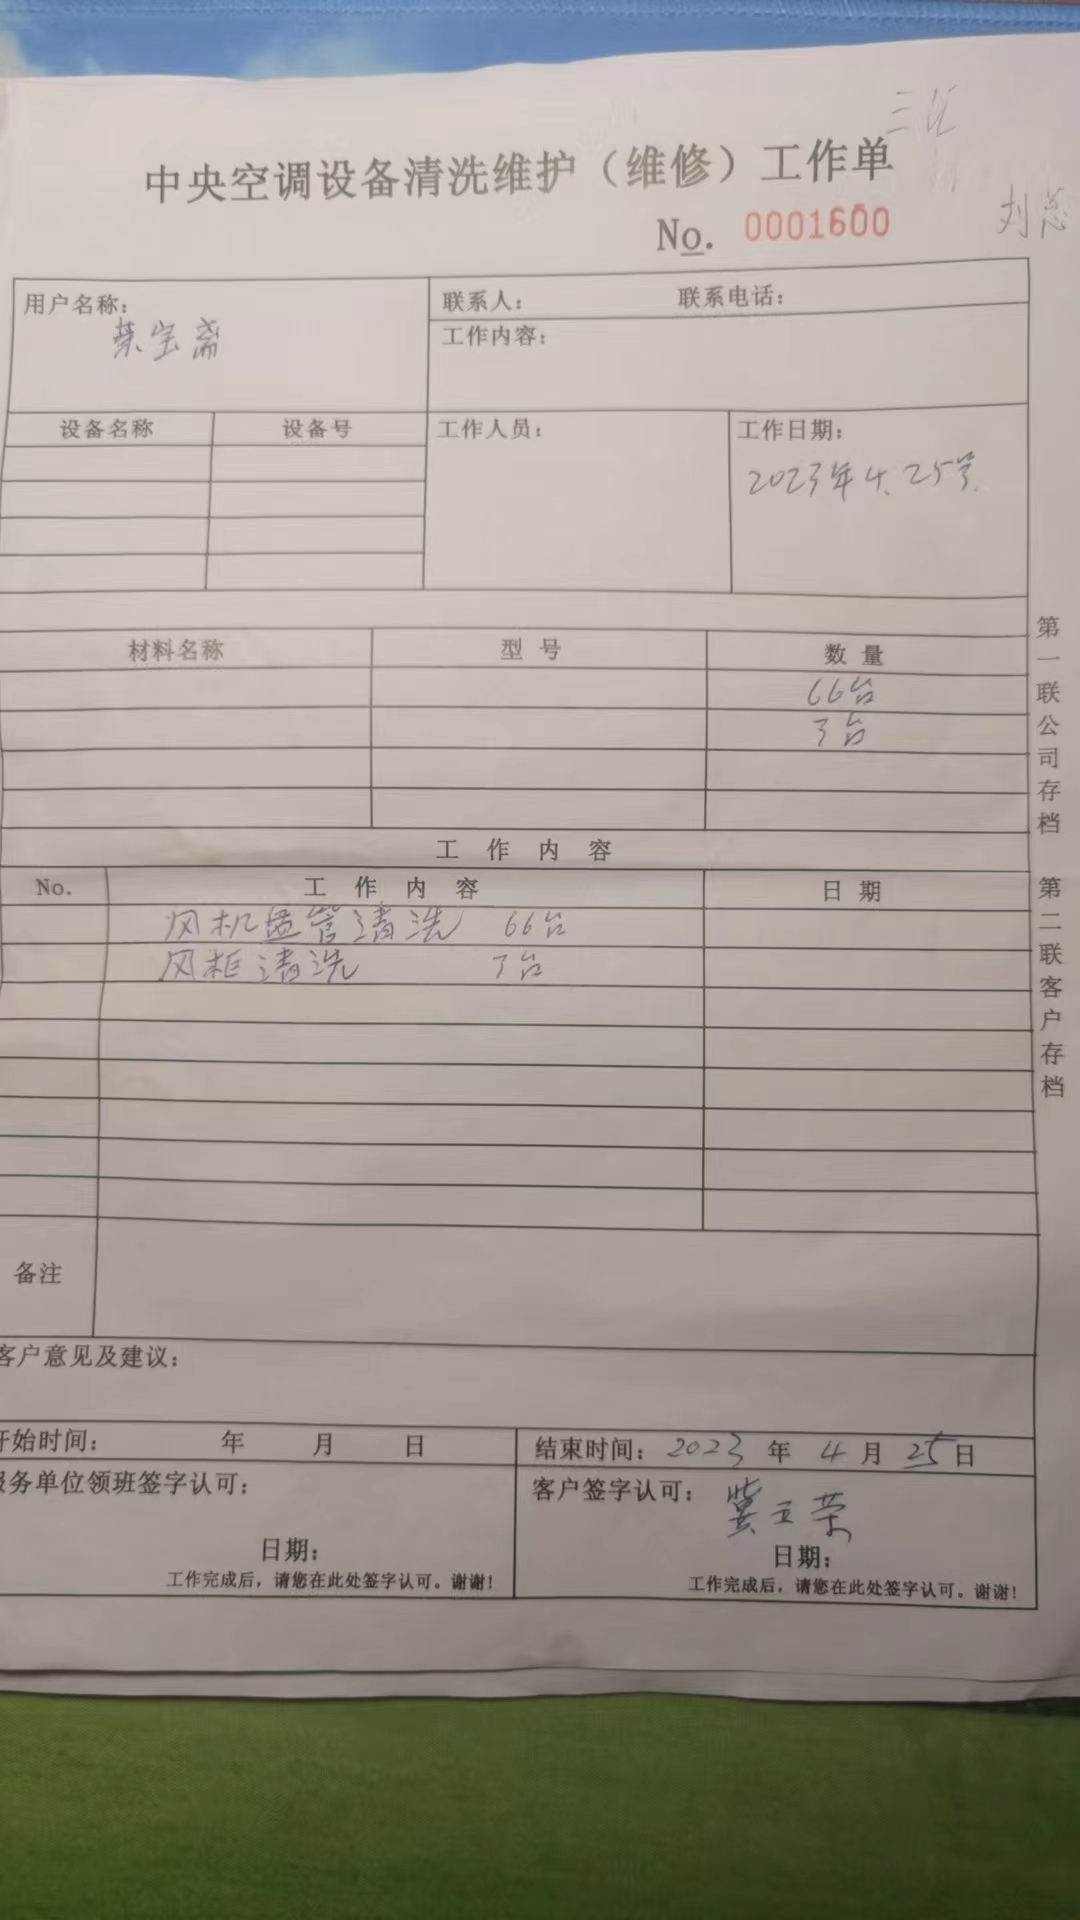 三优
中央空调设备清洗维护（维修）工作单
刘总
No. 0001600
用户名称：
荣宝斋
联系人： 联系电话：
工作内容：
设备名称 设备号
工作人员：
工作日期：
2023年4.25号
材料名称 型号 数量
66台
7台
工作内容
No. 工作内容 日期
风机盘管清洗 66台
风柜清洗 7台
备注
客户意见及建议：
开始时间： 年 月 日
结束时间：2023年4月25日
服务单位领班签字认可：
日期：
工作完成后，请您在此处签字认可。谢谢！
客户签字认可：冀立荣
日期：
工作完成后，请您在此处签字认可。谢谢！
第一联公司存档
第二联客户存档